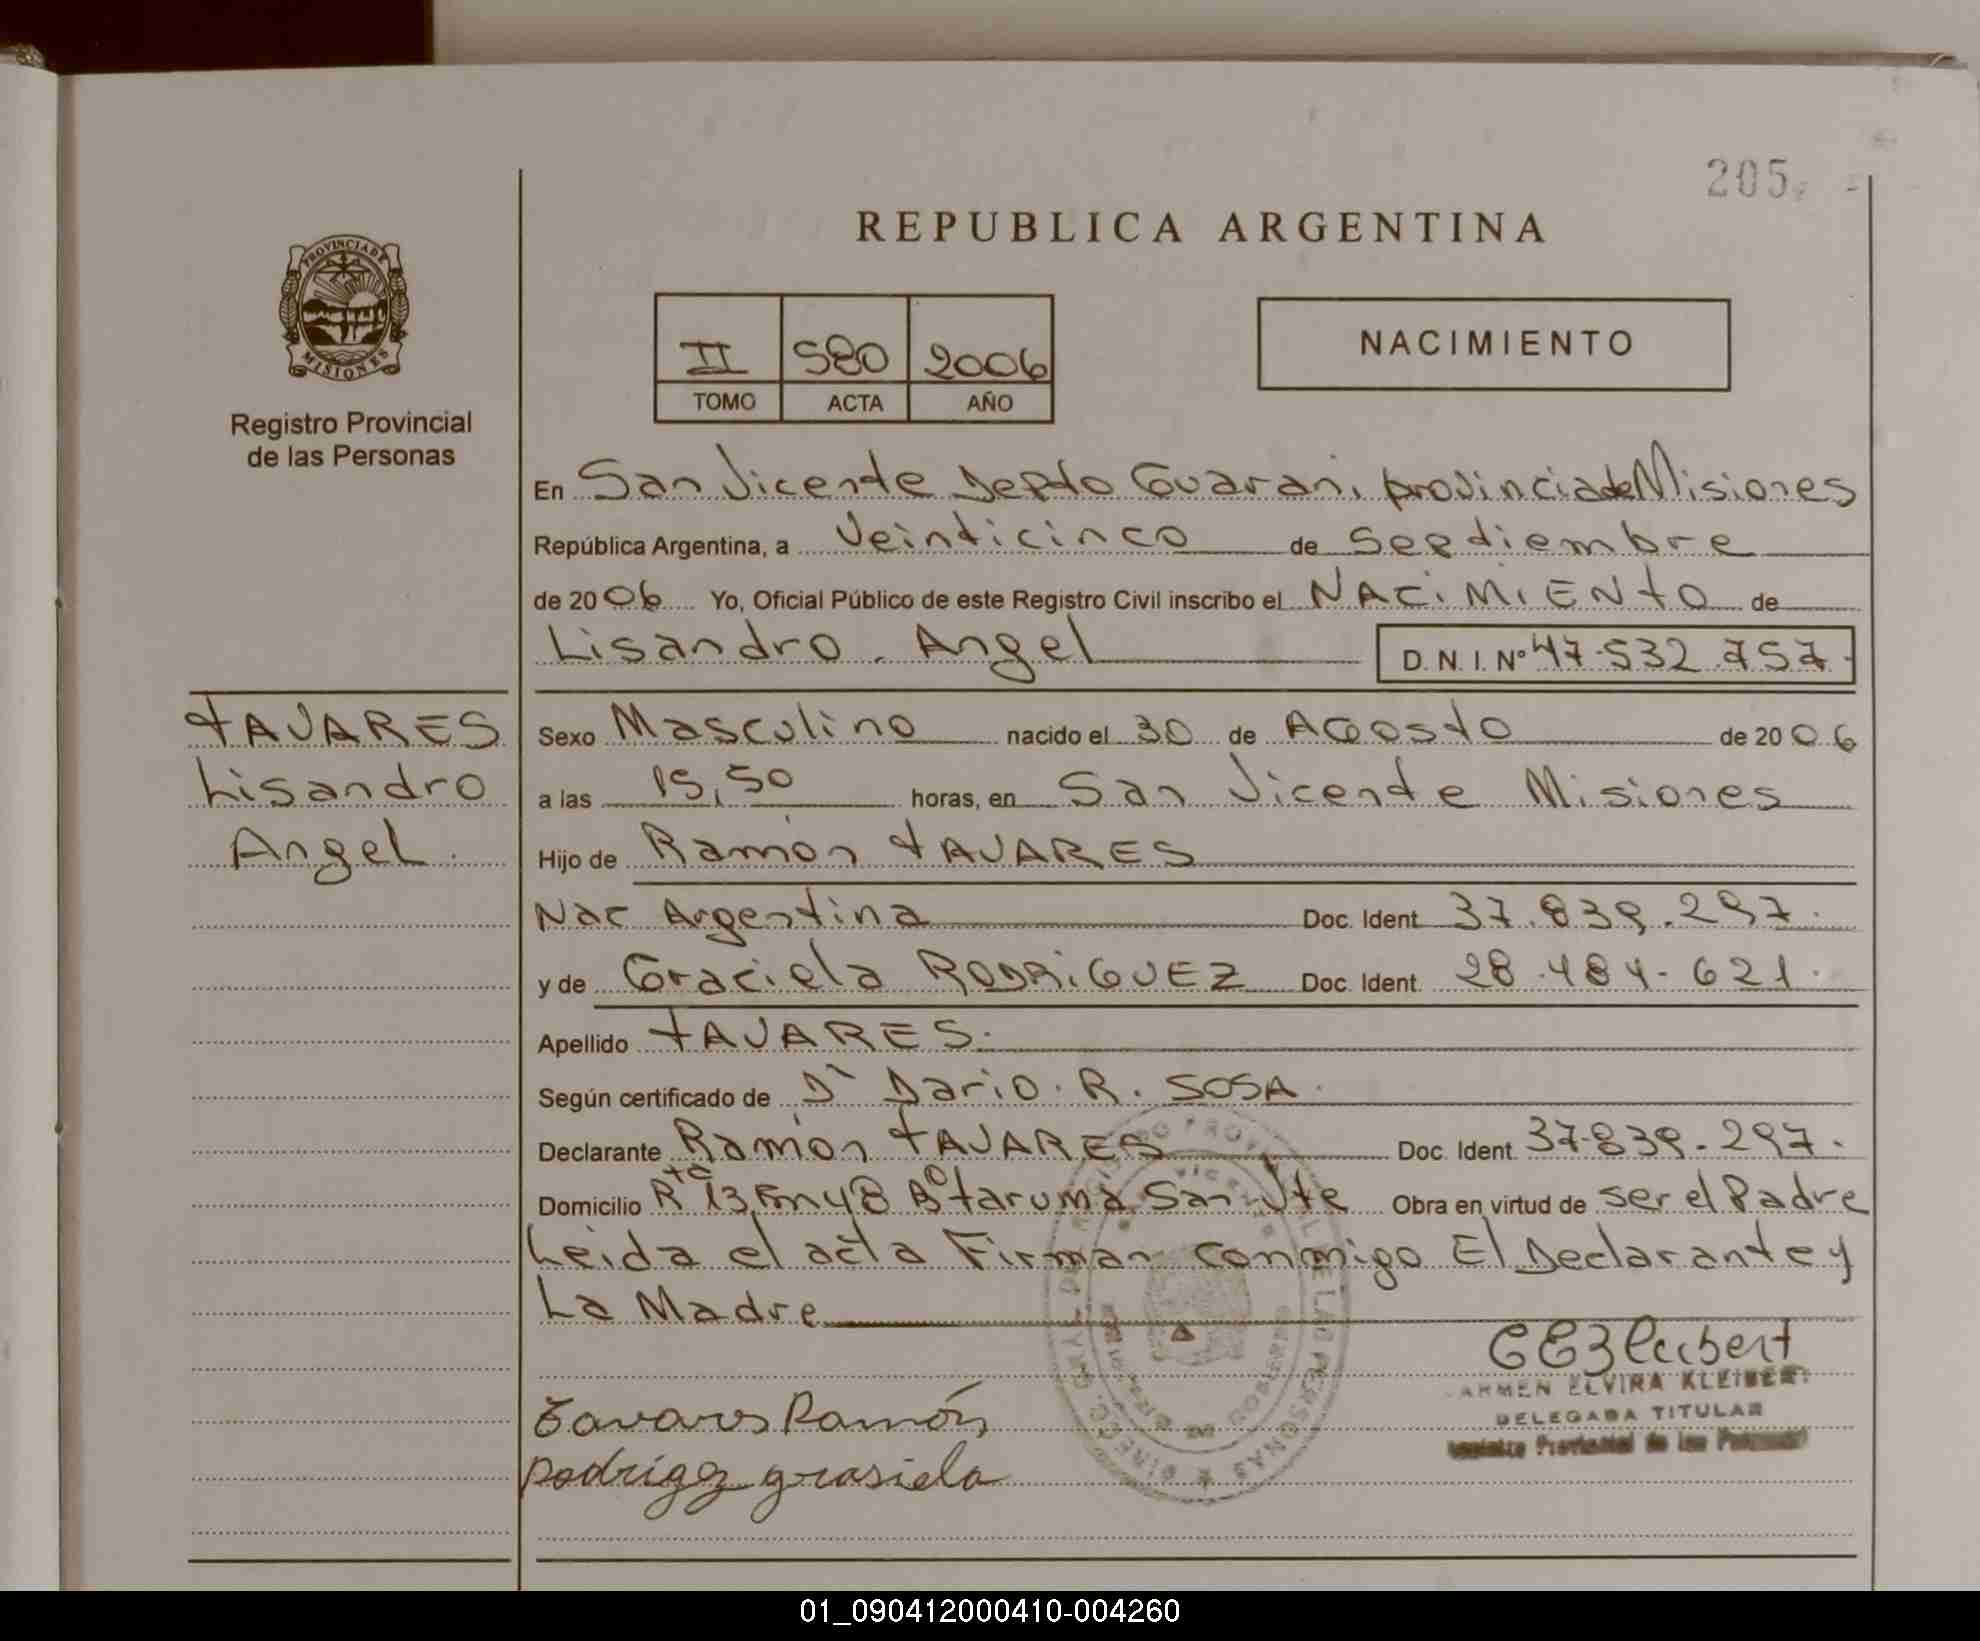 205
REPUBLICA ARGENTINA
PROVINCIA DE
MISIONES
Registro Provincial
de las Personas
II 580 2006
TOMO ACTA AÑO
NACIMIENTO
En San Vicente Depto Guarani, provincia de Misiones
República Argentina, a Veinticinco de Septiembre
de 2006 Yo, Oficial Público de este Registro Civil inscribo el NACiMiENtO de
Lisandro Angel D.N.I.Nº 47.532.757
TAVARES
Lisandro
Angel
Sexo Masculino nacido el 30 de Agosto de 2006
a las 15,50 horas, en San Vicente Misiones
Hijo de Ramón TAVARES
Nac Argentina Doc. Ident 37.839.297.
y de Graciela RODRiGUEZ Doc. Ident. 28.484.621.
Apellido TAVARES.
Según certificado de Dr Dario. R. SOSA.
Declarante Ramón TAVARES Doc. Ident. 37.839.297.
Domicilio Rta 13 y B° taruma San Vte Obra en virtud de ser el Padre
Leida el acta Firman conmigo El Declarante y
La Madre
CEZKleibert
CARMEN ELVIRA KLEIBERT
DELEGADA TITULAR
Registro Provincial de las Personas
Tavares Ramón
Rodrigez grasiela
01_090412000410-004260